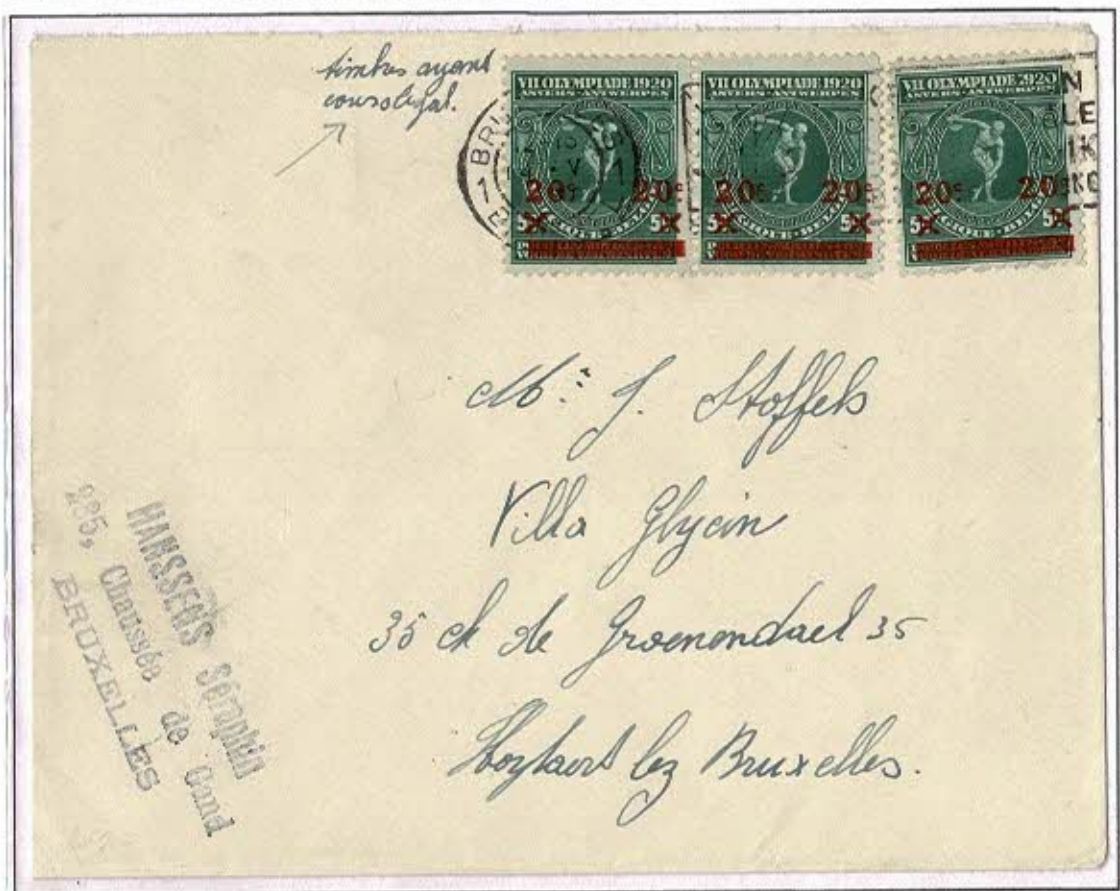 timbres ayant
cours légal.
VII OLYMPIADE 1920
ANVERS·ANTWERPEN
20c 20c
VII OLYMPIADE 1920
ANVERS·ANTWERPEN
20c 20c
VII OLYMPIADE 1920
ANVERS·ANTWERPEN
20c 20c
Mr. J. Stoffels
Villa Glycin
35 ch de Groenendael 35
Hoylaert lez Bruxelles.
HANSSENS Séraphin
285, Chaussée de Gand
BRUXELLES